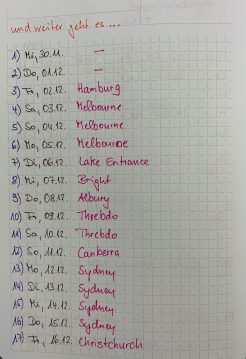 und weiter geht es...
1) Mi, 30.11. —
2) Do, 01.12. —
3) Fr, 02.12. Hamburg
4) Sa, 03.12. Melbourne
5) So, 04.12. Melbourne
6) Mo, 05.12. Melbourne
7) Di, 06.12. Lake Entrance
8) Mi, 07.12. Bright
9) Do, 08.12. Albury
10) Fr, 09.12. Thredbo
11) Sa, 10.12. Thredbo
12) So, 11.12. Canberra
13) Mo, 12.12. Sydney
14) Di, 13.12. Sydney
15) Mi, 14.12. Sydney
16) Do, 15.12. Sydney
17) Fr, 16.12. Christchurch